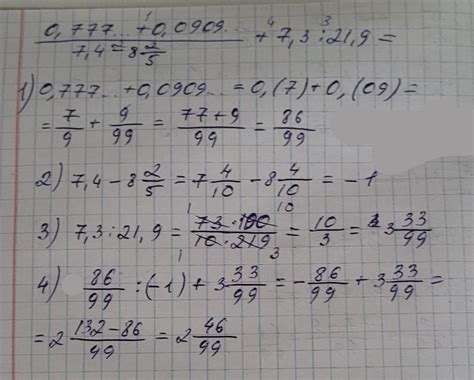 (0,777...+0,0909...)/(7,4-8 2/5) + 7,3:21,9=
1) 0,777...+0,0909...=0,(7)+0,(09)=
= 7/9 + 9/99 = (77+9)/99 = 86/99
2) 7,4-8 2/5 = 7 4/10 - 8 4/10 = -1
3) 7,3:21,9 = (73·100)/(10·219) = 10/3 = 3 33/99
4) 86/99 :(-1)+ 3 33/99 = - 86/99 + 3 33/99 =
= 2 (132-86)/99 = 2 46/99